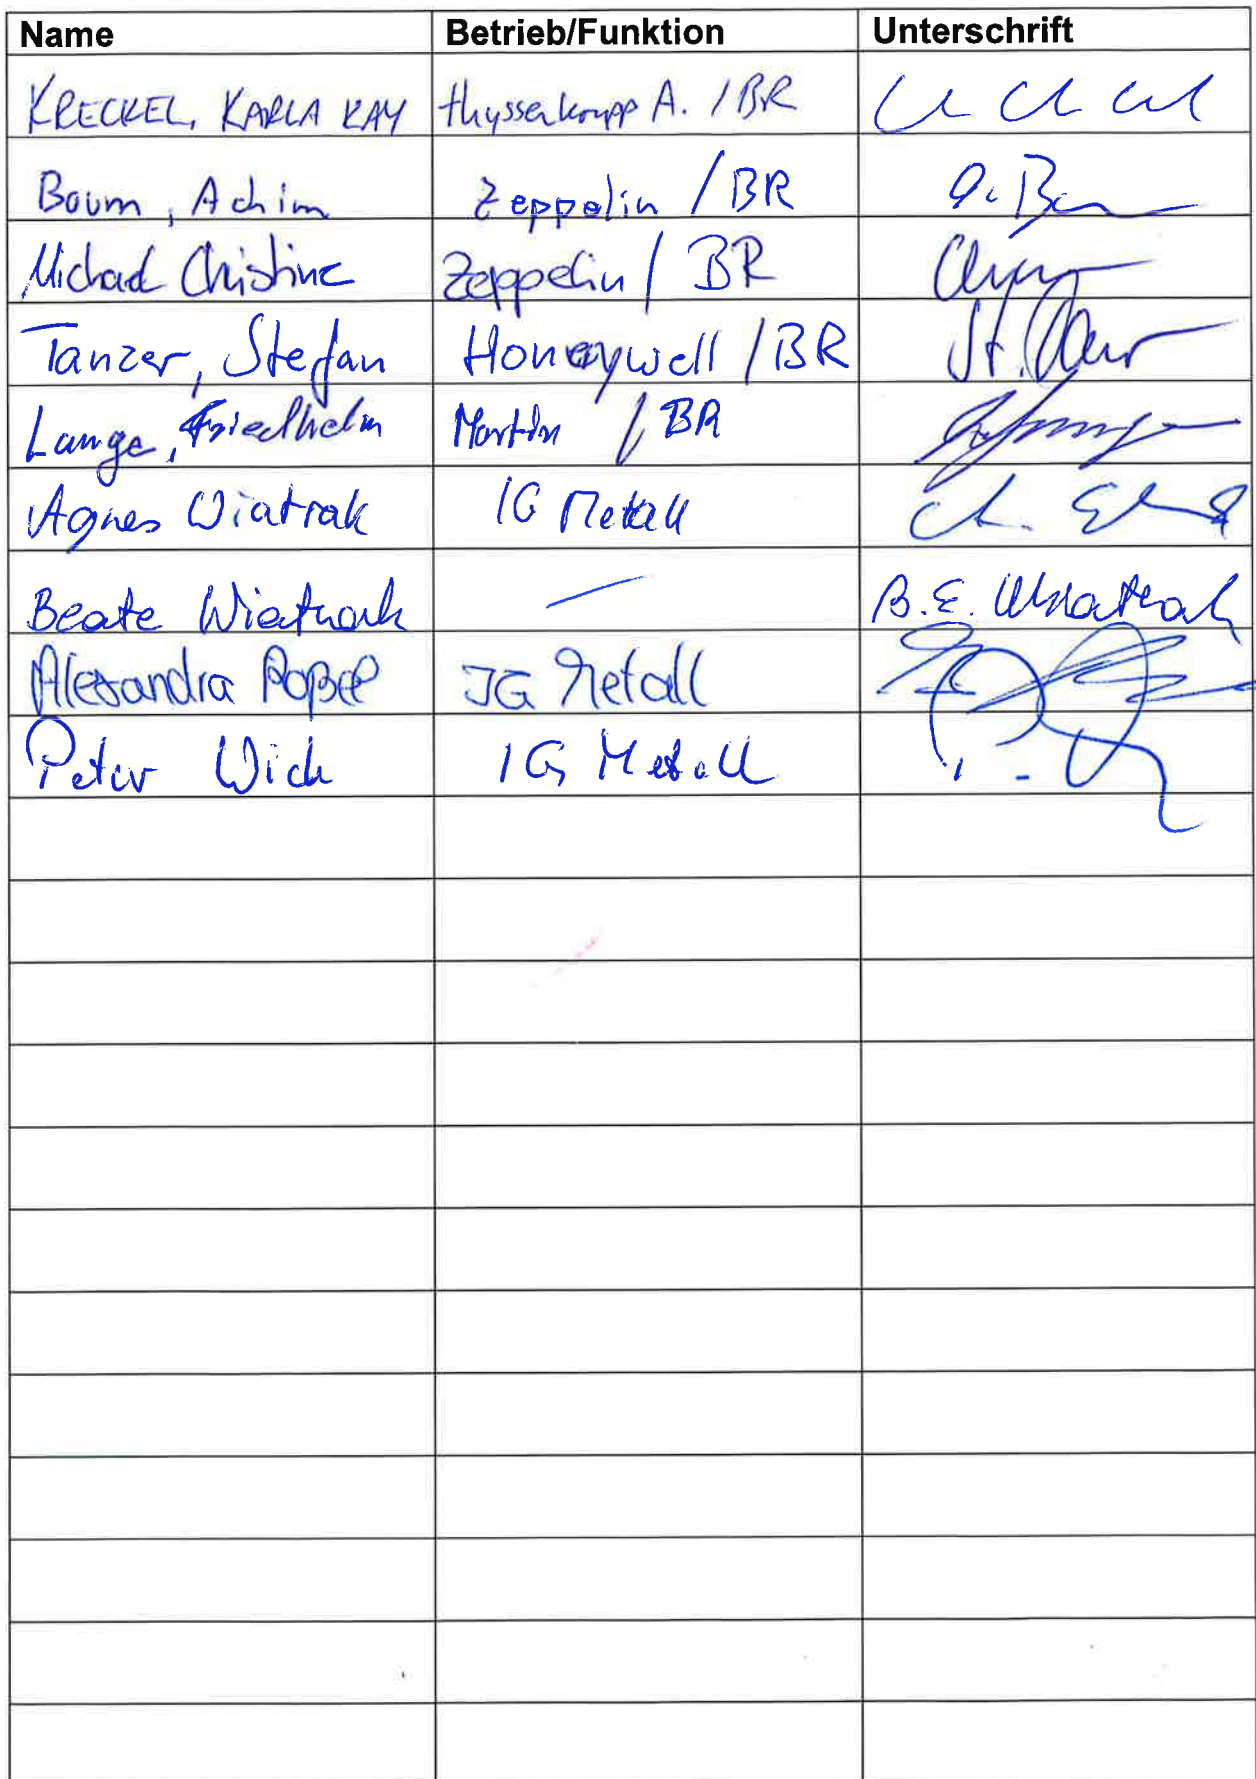 Name Betrieb/Funktion Unterschrift
KRECKEL, KARLA KAY thyssenkrupp A. / BR
Baum, Achim Zeppelin / BR A. Ba
Michael Christine Zeppelin / BR
Tanzer, Stefan Honeywell / BR St.
Lange, Friedhelm Martin / BR
Agnes Wiatrak IG Metall
Beate Wiatrak — B. E. Wiatrak
Alexandra Roßel IG Metall
Peter Wich IG Metall